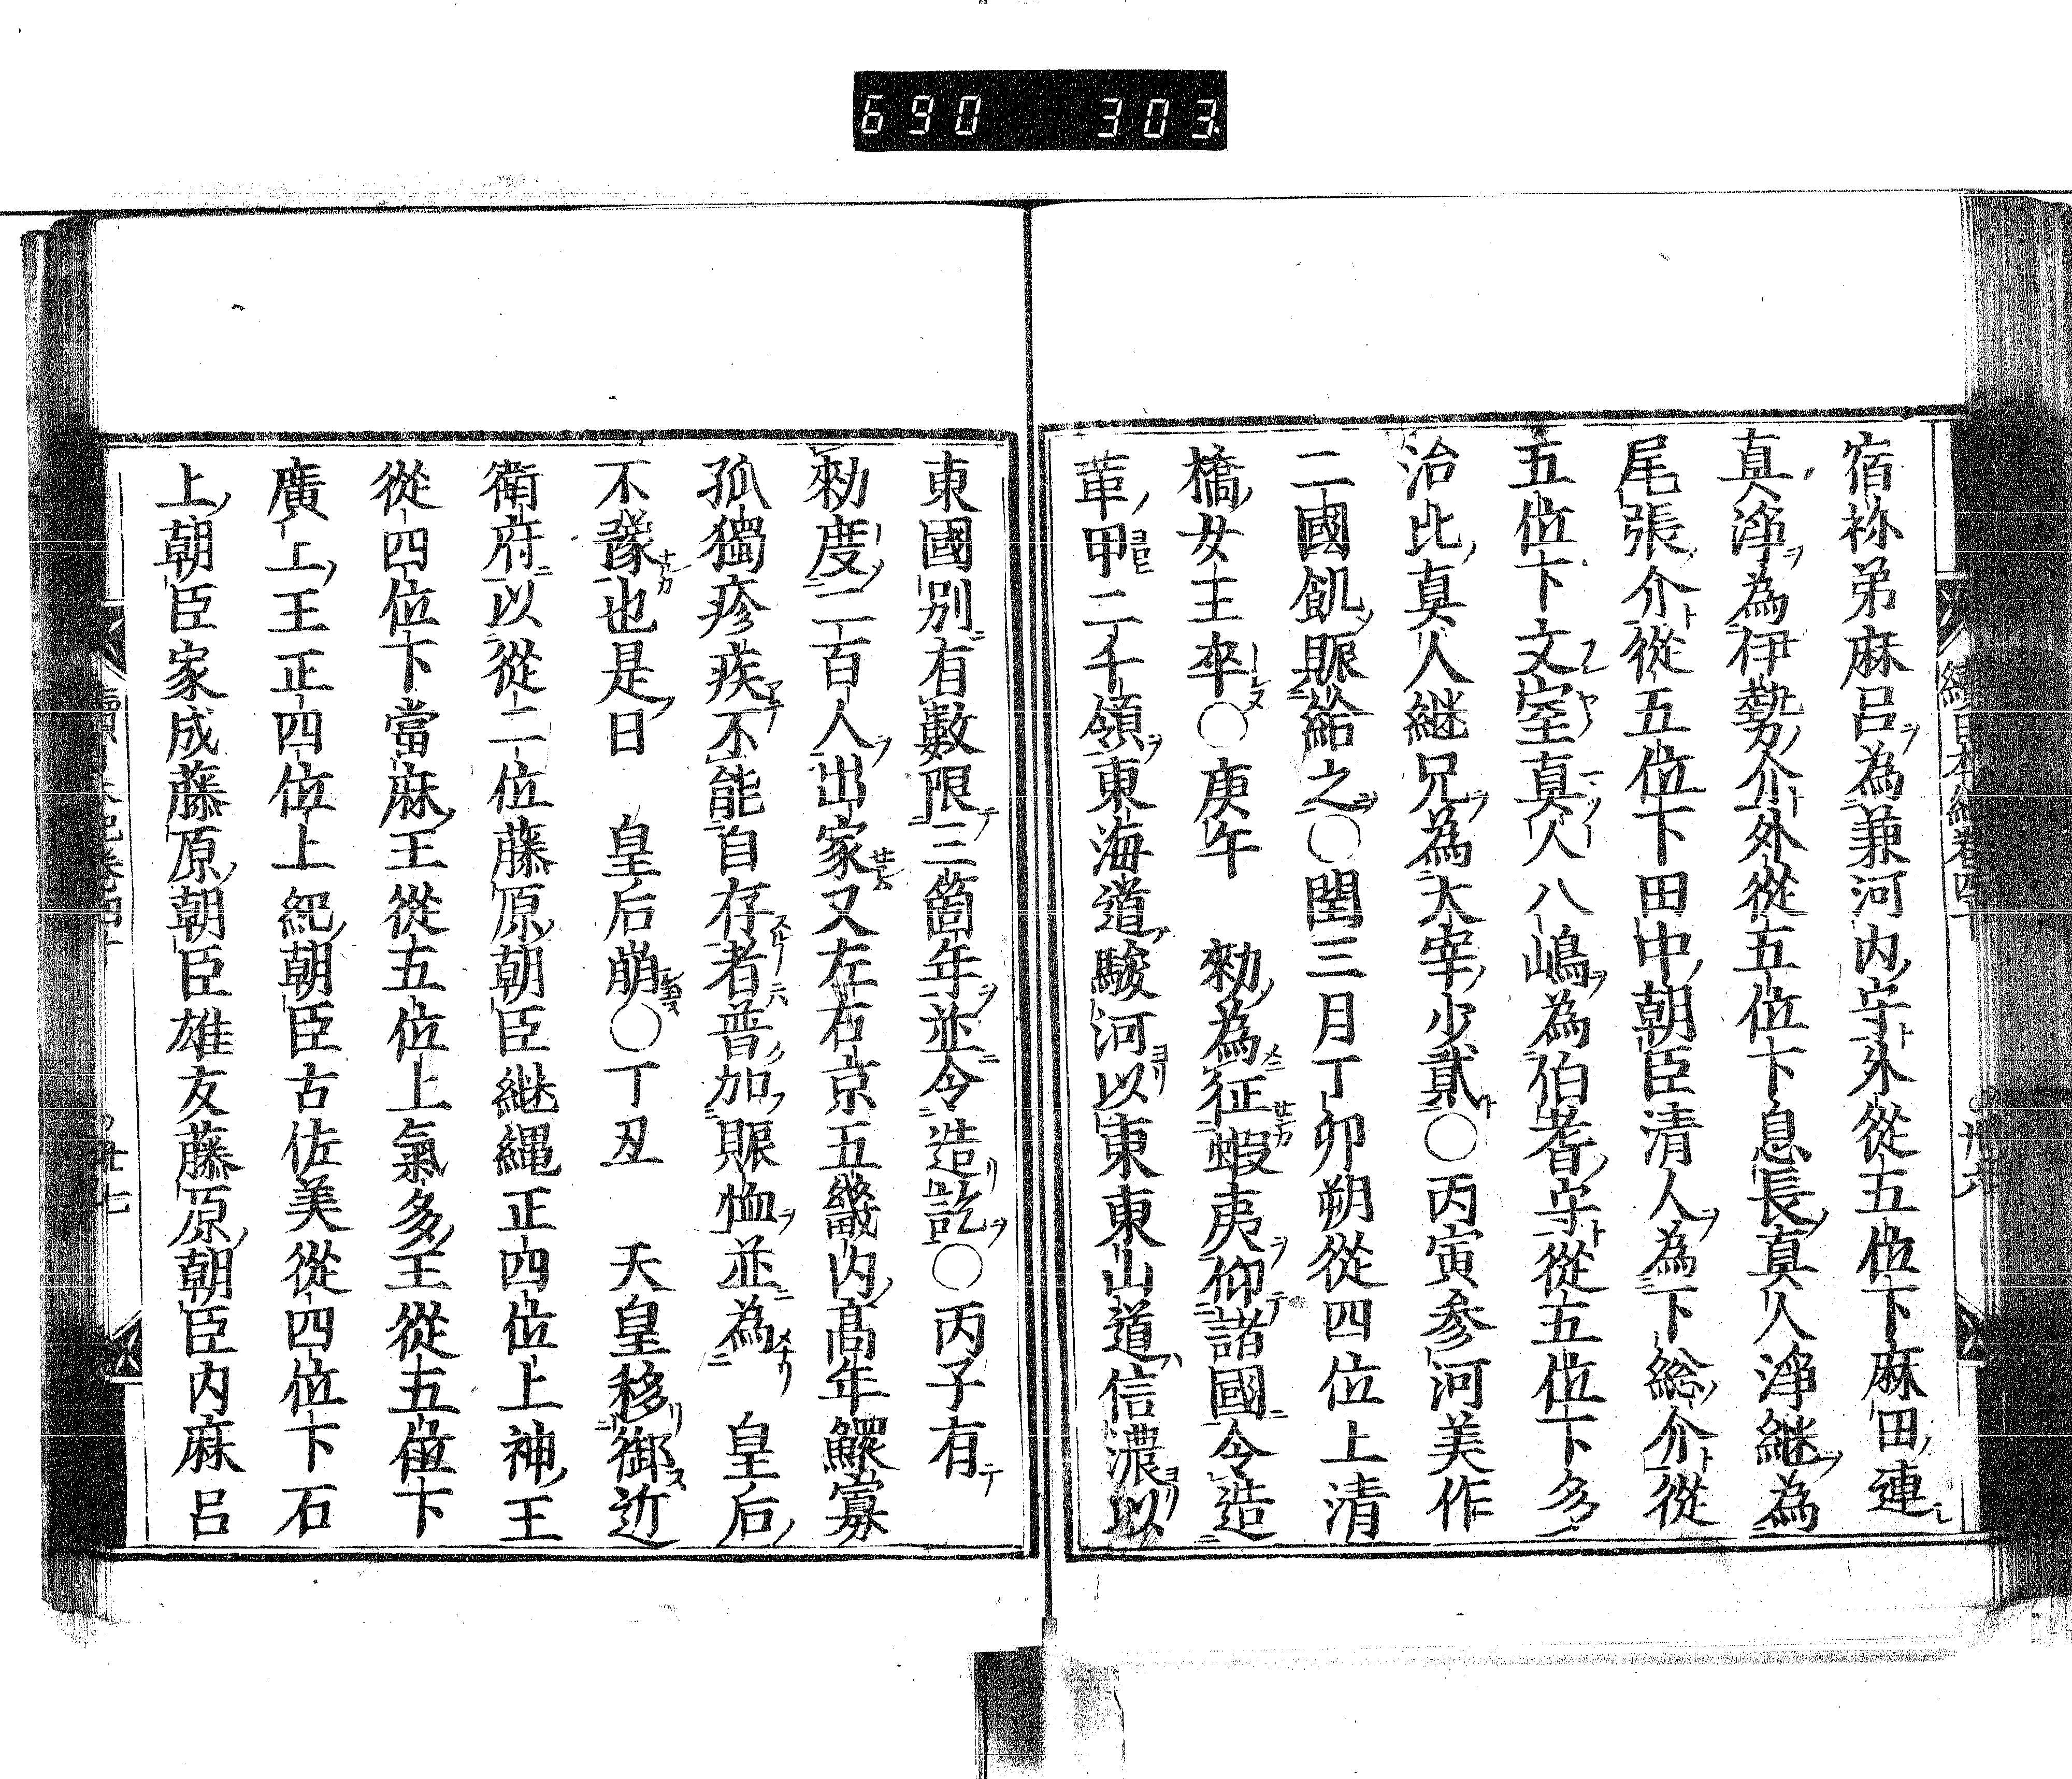 690 303
宿祢弟麻呂為兼河内守外從五位下麻田連
真淨為伊勢介外從五位下息長真人淨継為
尾張介從五位下田中朝臣清人為下総介從
五位下文室真人八嶋為伯耆守從五位下多
治比真人継兄為大宰少貳○丙寅参河美作
二國飢賑給之○閏三月丁卯朔從四位上清
橋女王卒○庚午 勑為征蝦夷仰諸國令造
革甲二千領東海道駿河以東東山道信濃以
東國別有數限三箇年並令造訖○丙子有
勑度二百人出家又左右京五畿内高年鰥寡
孤獨疹疾不能自存者普加賑恤並為 皇后
不豫也是日 皇后崩○丁丑 天皇移御近
衛府以從二位藤原朝臣継縄正四位上神王
從四位下當麻王從五位上氣多王從五位下
廣上王正四位上紀朝臣古佐美從四位下石
上朝臣家成藤原朝臣雄友藤原朝臣内麻呂